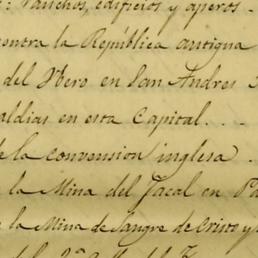 : ranchos, edificios y aperos.
contra la República antigua
del Ybero en San Andres
aldias en esta Capital...
de la convension inglesa.
la Mina del Jacal en
la Mina de Sangre de Cristo y